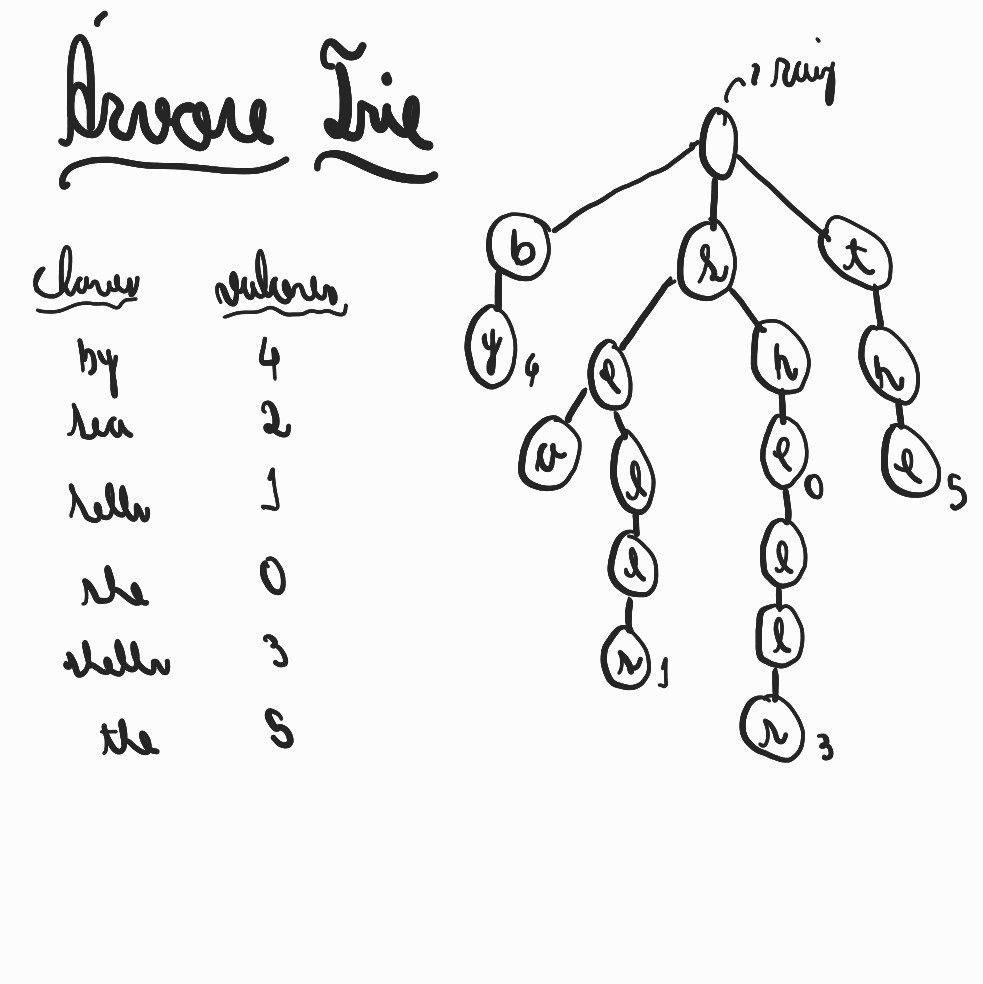 Árvore Trie
raiz
chaves valores
by 4
sea 2
sells 1
she 0
shells 3
the 5
b s t
y 4 e h h
a l e 0 e 5
l l
s 1 l
s 3